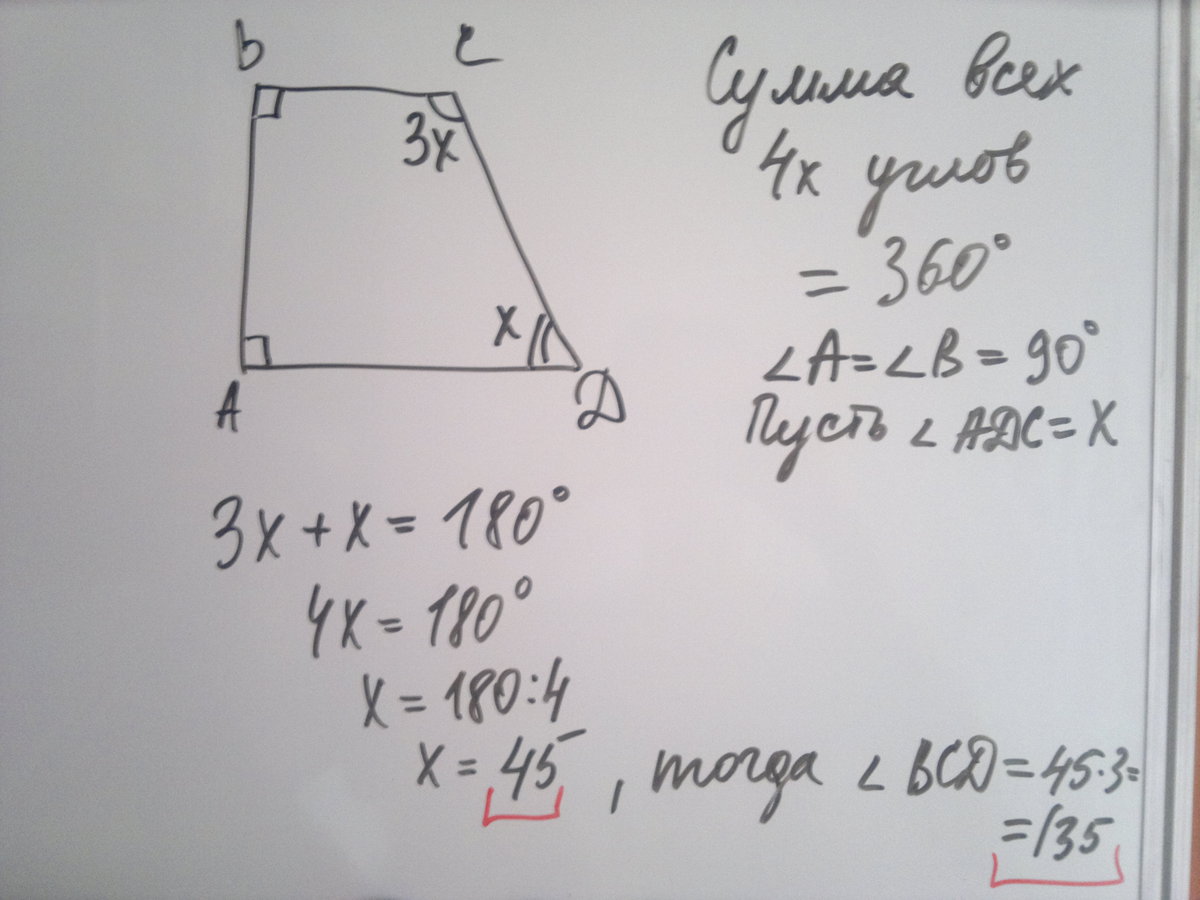 B C
3x
x
A D
Сумма всех
4х углов
= 360°
∠A = ∠B = 90°
Пусть ∠ADC = x
3x + x = 180°
4x = 180°
x = 180:4
x = 45 , тогда ∠BCD = 45·3=
=135